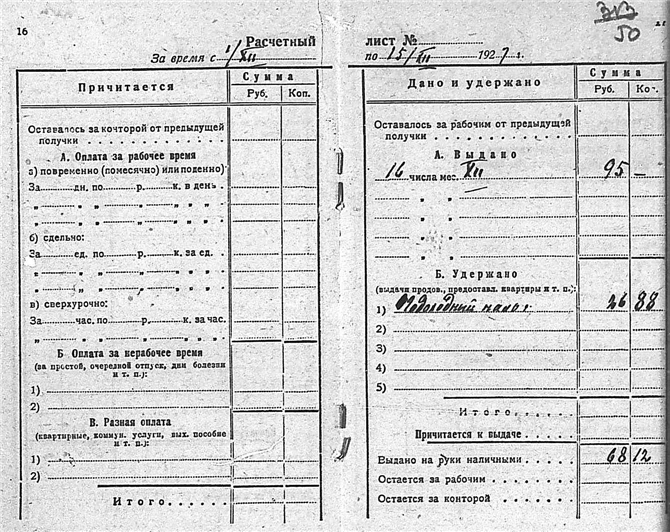 16
Расчетный
За время с 1/XII
Причитается
Сумма
Руб. Коп.
Оставалось за конторой от предыдущей
получки
А. Оплата за рабочее время
а) повременно (помесячно) или поденно)
За дн. по р. к. в день
„ „ „ „ „
„ „ „ „ „
б) сдельно:
За ед. по р. к. за ед.
„ „ „ „ „
„ „ „ „ „
в) сверхурочно:
За час. по р. к. за час.
„ „ „ „ „
Б Оплата за нерабочее время
(за простой, очередной отпуск, дни болезни
и т. п.):
1)
2)
В. Разная оплата
(квартирные, коммун. услуги, вых. пособие
и т. п.):
1)
2)
Итого
50
лист №
по 15/XII 1927 г.
Дано и удержано
Сумма
Руб. Коп.
Оставалось за рабочим от предыдущей
получки
А. Выдано
16 числа мес. XII 95 —
„ „
„ „
„ „
„ „
Б. Удержано
(выдачи продов., предоставл. квартиры и т. п.):
1) Подоходный налог 26 88
2)
3)
4)
5)
Итого
Причитается к выдаче
Выдано на руки наличными 68 12
Остается за рабочим
Остается за конторой